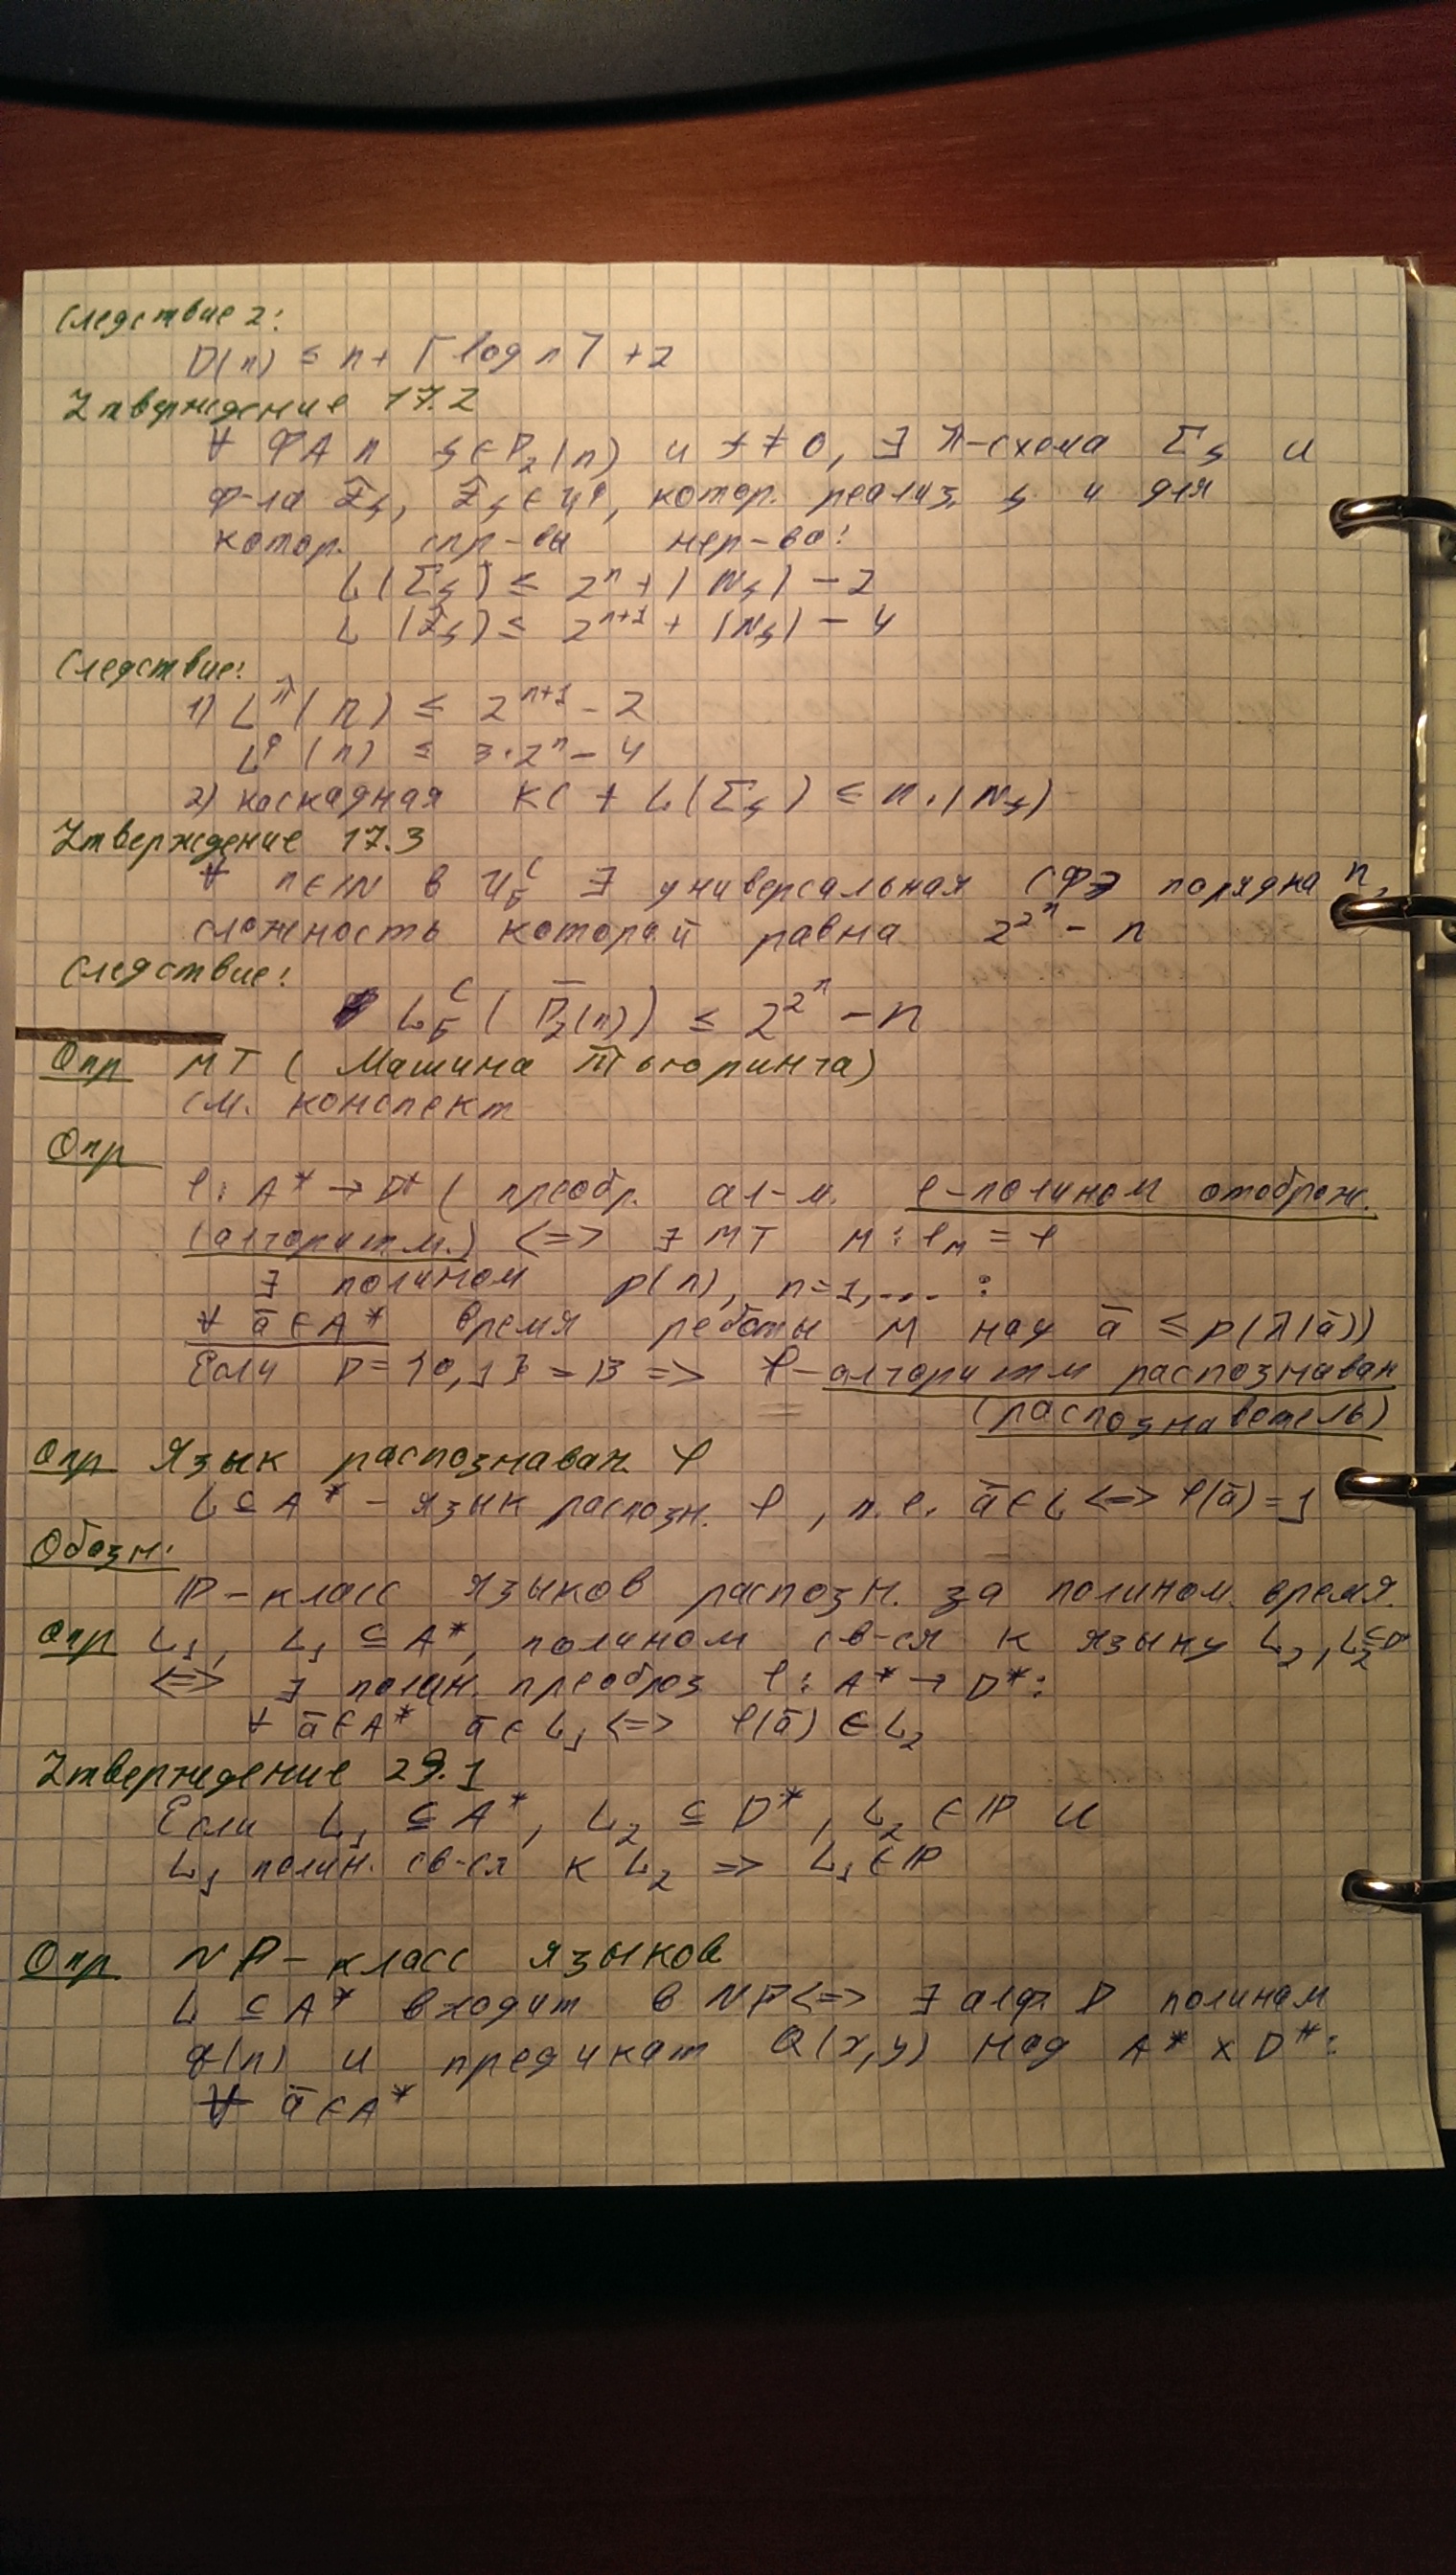 Следствие 2:
D(n) ≤ n + ⌈log n⌉ + 2
Утверждение 17.2
∀ ФАЛ f ∈ P₂(n) и f ≠ 0, ∃ π-схема Σ_f и
ф-ла F_f, F_f ∈ U^Ф, котор. реализ. f и для
котор. спр-вы нер-ва:
L(Σ_f) ≤ 2ⁿ + |N_f| - 2
L(F_f) ≤ 2ⁿ⁺¹ + |N_f| - 4
Следствие:
1) L^π(n) ≤ 2ⁿ⁺¹ - 2
L^Ф(n) ≤ 3·2ⁿ - 4
2) каскадная КС + L(Σ_f) ≤ n·|N_f|
Утверждение 17.3
∀ n∈ℕ в U_Б^С ∃ универсальная СФЭ порядка n,
сложность которой равна 2^(2ⁿ) - n
Следствие:
L_Б^С (P̄₂(n)) ≤ 2^(2ⁿ) - n
Опр МТ (Машина Тьюринга)
см. конспект
Опр
φ: A* → D* (преобр. ал-м. φ-полином отображ.
(алгоритм.) <=> ∃ МТ M: φ_M = φ
∃ полином p(n), n=1,...:
∀ ā∈A* время работы M над ā ≤ p(λ(ā))
Если D={0,1}=B => φ-алгоритм распознаван
(распознаватель)
Опр Язык распознаван. φ
L ⊆ A* - язык распозн. φ, т.е. ā∈L <=> φ(ā)=1
Обозн:
ℙ-класс языков распозн. за полином. время.
Опр L₁, L₁ ⊆ A*, полином св-ся к языку L₂, L₂⊆D*
<=> ∃ полин. преобраз φ: A* → D*:
∀ ā∈A* ā∈L₁ <=> φ(ā) ∈ L₂
Утверждение 29.1
Если L₁ ⊆ A*, L₂ ⊆ D*, L₂ ∈ ℙ и
L₁ полин. св-ся к L₂ => L₁ ∈ ℙ
Опр NP-класс языков
L ⊆ A* входит в NP <=> ∃ алф. D полином
q(n) и предикат Q(x,y) над A* x D*:
∀ ā∈A*